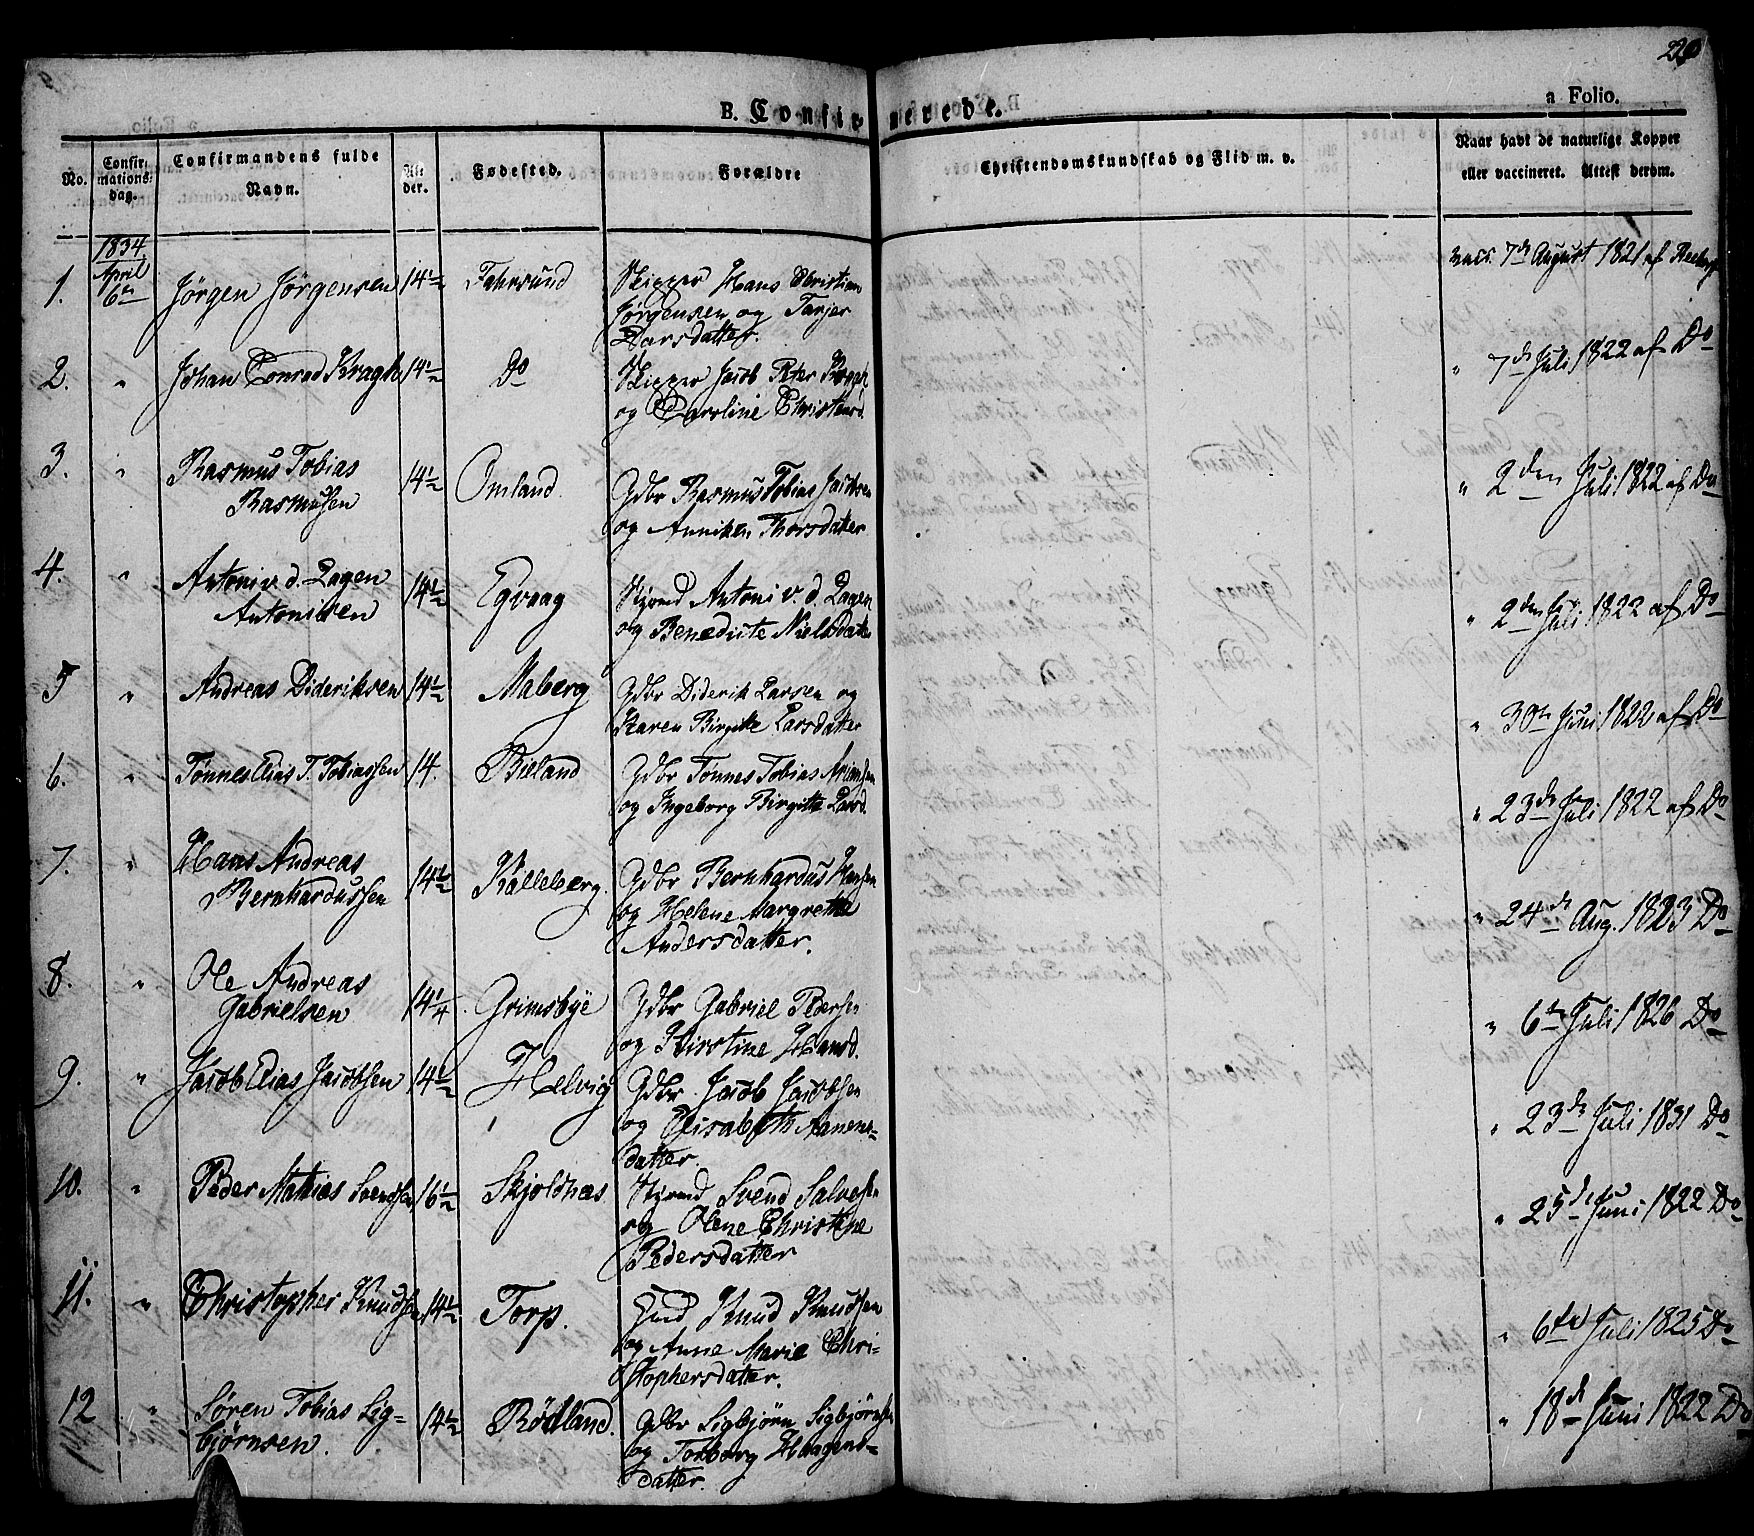 220
B. Confirmerede.
a Folio.
No.
Confirmations-
dag.
Confirmandens fulde
Navn.
Alder.
Fødested.
Forældre
Christendomskundskab og Flid m. v.
Naar havt de naturlige Kopper
eller vaccineret. Attest derom.
1834
April
6te
1. Jørgen Jørgensen 14½ Fahrsund Skipper Hans Christian
Jørgensen og Tarjer
Larsdatter. vacc. 7de August 1821 af
2. " Johan Conrad Kragh 14½ Do Skipper Jacob Peter Kragh
og Caroline Christensd. " 7de Juli 1822 af Do
3. " Rasmus Tobias
Rasmussen 14½ Omland Gdbr Rasmus Tobias Jacobsen
og Anniken Thorsdatter " 2den Juli 1822 af Do
4. " Antoni v. d. Lagen
Antonisen 14½ Egvaag Styrmd Antoni v. d. Lagen
og Benedicte Nielsdatter " 2den Juli 1822 af Do
5 " Andreas Dideriksen 14½ Maberg Gdbr Diderik Larsen og
Karen Birgitte Larsdatter " 30te Juni 1822 af Do
6. " Tønnes Elias T. Tobiassen 14. Bieland Gdbr Tønnes Tobias
og Ingeborg Birgitte Larsd. " 23de Juli 1822 af Do
7. " Hans Andreas
Bernhardussen 14½ Kalleberg. Gdbr Bernhardus Hansen
og Helene Margrethe
Andersdatter. " 24de Aug. 1823 Do
8. " Ole Andreas
Gabrielsen 14¼ Grimsbye Gdbr Gabriel Pedersen
og Kirstine Hansd. " 6te Juli 1826 Do
9. " Jacob Elias Jacobsen 14½ Helvig Gdbr. Jacob Jacobsen
og Elisabeth Aanens-
datter. " 23de Juli 1831 Do
10. " Peder Mathias Svendsen 16½ Skjoldnæs Styrmd Svend Salvesen
og Olene Christine
Pedersdatter " 25de Juni 1822 Do
11. " Christopher Knudsen 14½ Torp. Knud Knudsen
og Anne Marie Chri-
stophersdatter. " 6te Juli 1825 Do
12 " Søren Tobias Sig-
bjørnsen. 14½ Rødland. Gdbr Sigbjørn Sigbjørnsen
og Torborg Haagens-
datter. " 18de Juni 1822 Do